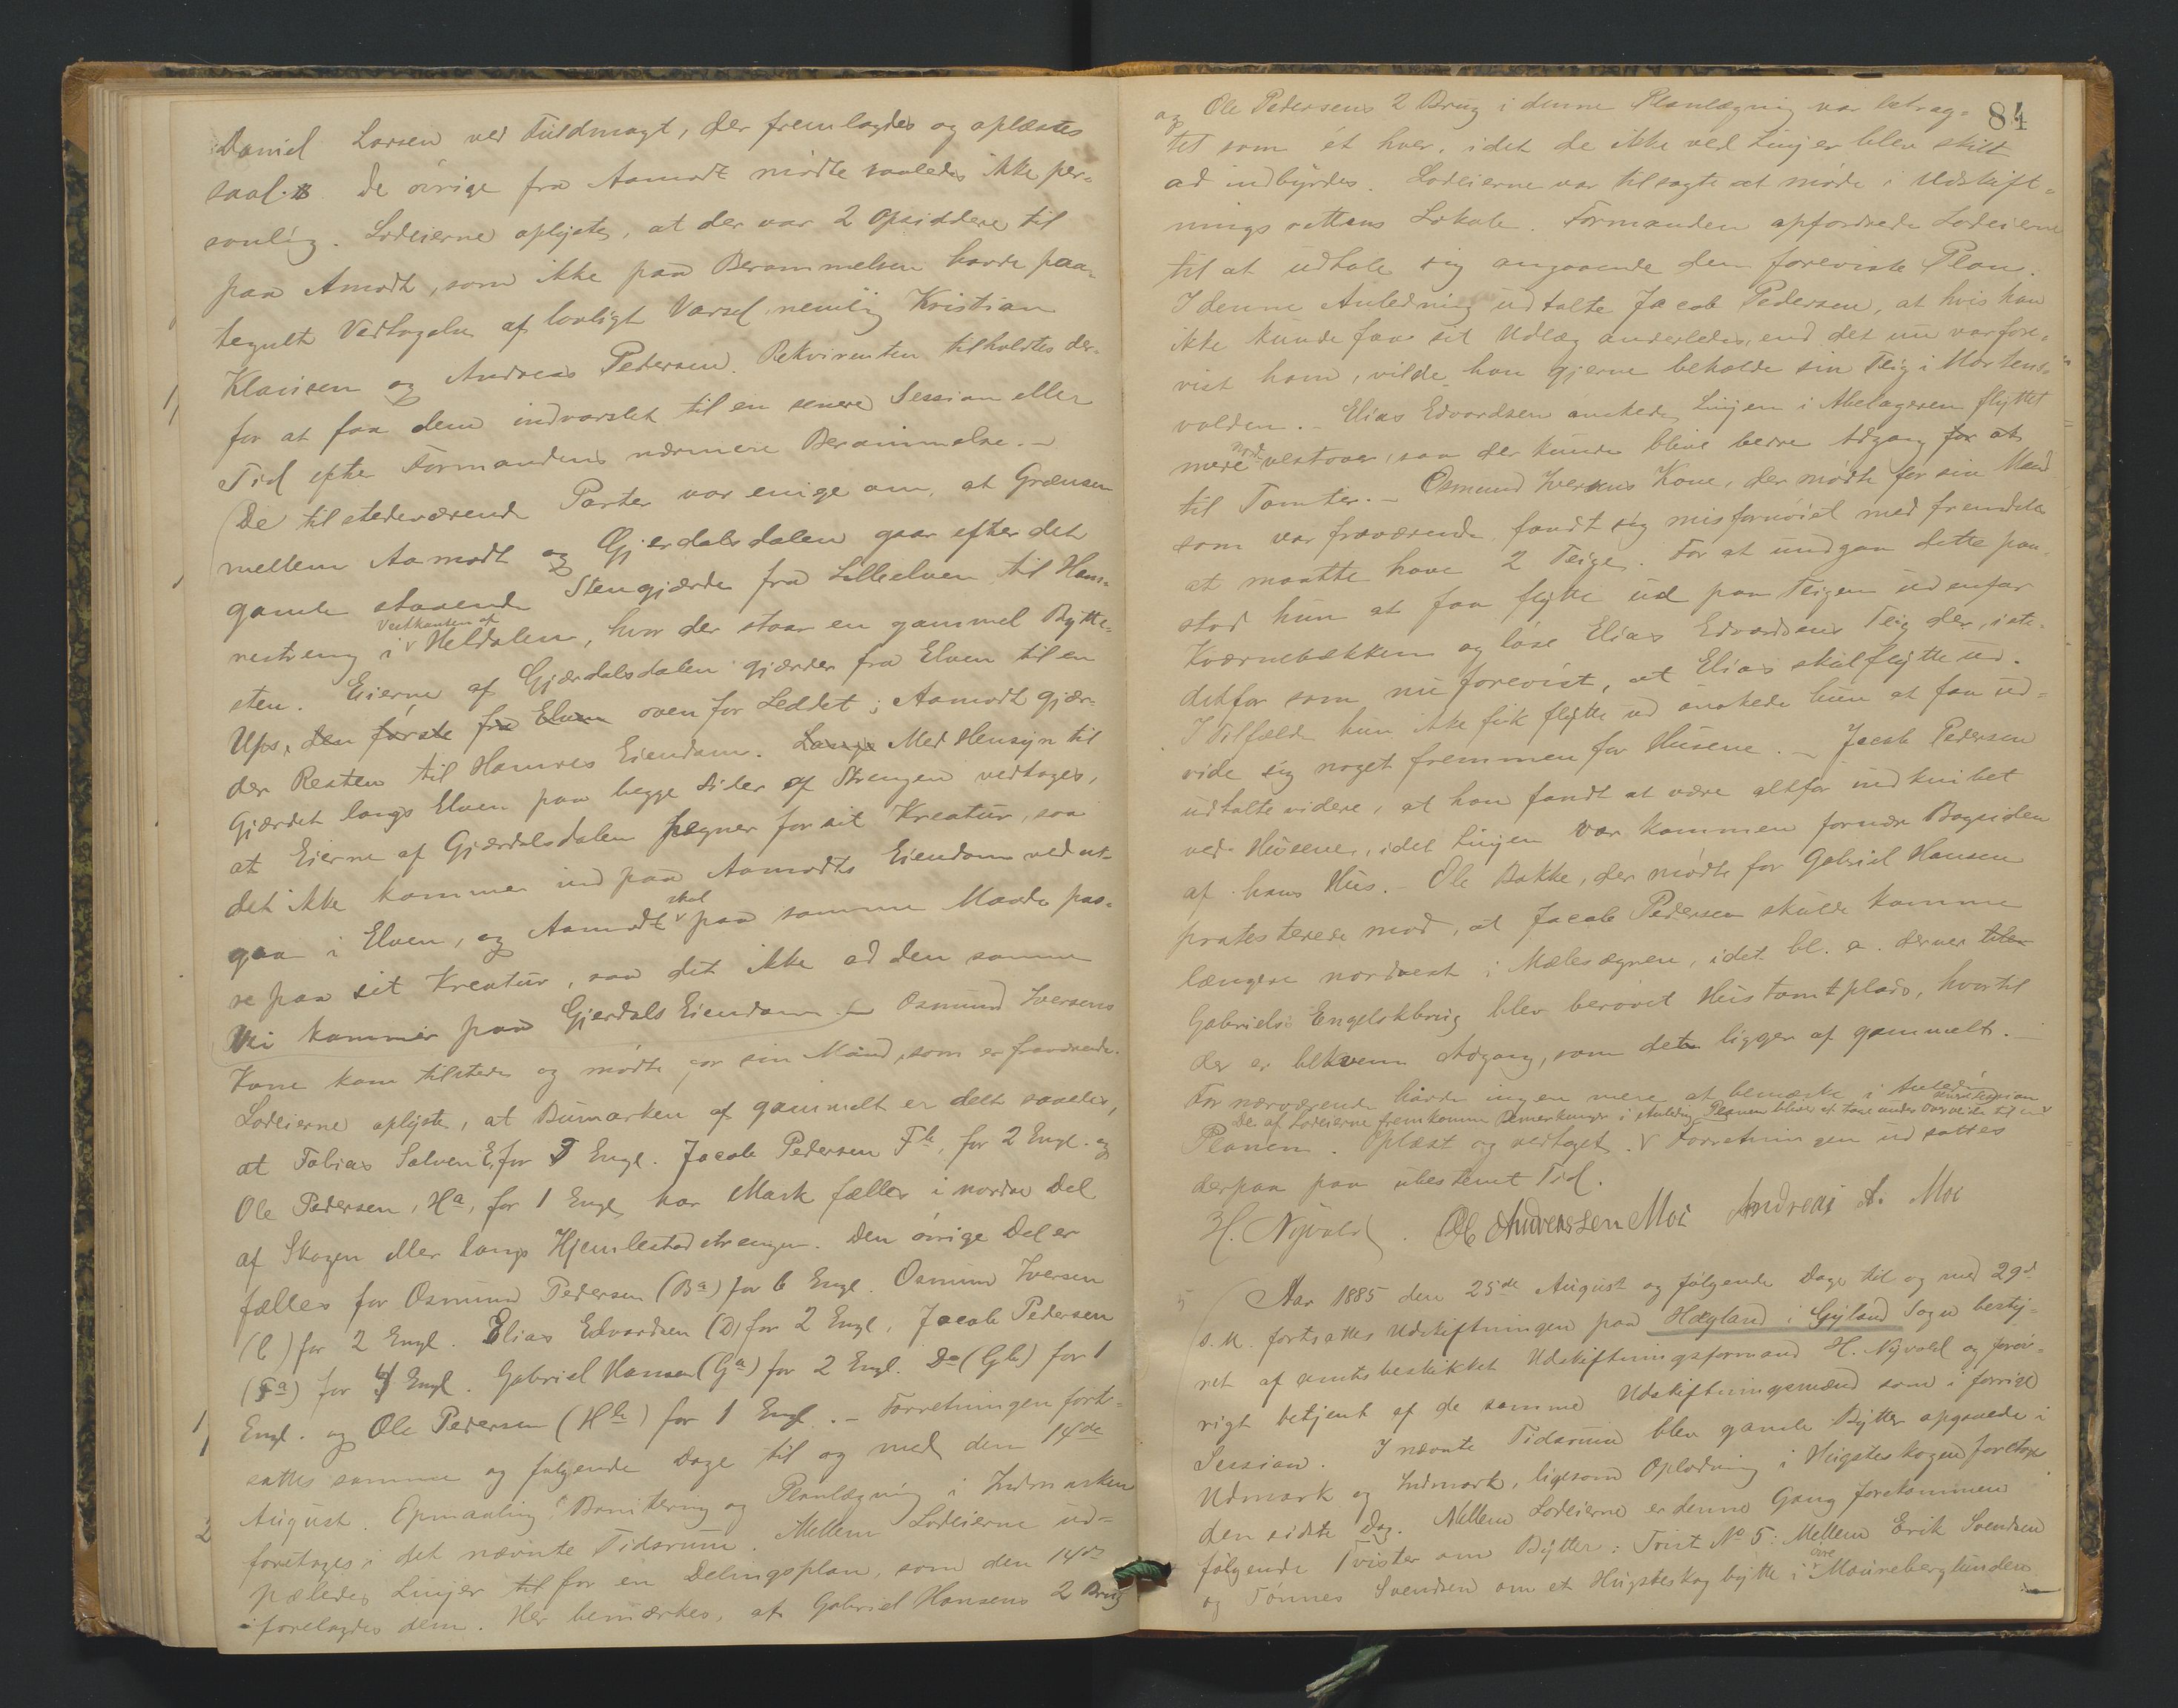 Daniel Larsen ved Fuldmagt, der fremlagdes og oplæstes
saal. De øvrige fra Aamodt mødte saaledes ikke per-
sonlig. Lodeierne oplyste, at der var 2 Opsiddere til
paa Amodt, som ikke paa Berammelsen havde paa-
tegnet Vedtagelse af lovligt Varsel, nemlig Kristian
Klausen og Andreas Pedersen. Rekvirenten tilholdtes der-
for at faa dem indvarslet til en senere Session eller
Tid efter Formandens nærmere Berammelse. –
De tilstedeværende Parter var enige om, at Grænsen
mellem Aamodt og Gjerdalsdalen gaar efter det
gamle staaende Stengjærde fra Lilleelven til Ham-
restreng i Vestkanten af Heldalen, hvor der staar en gammel Bytte-
sten. Eierne af Gjærdalsdalen gjærder fra Elven til en
Ups, den første fra Elven ovenfor Leddet; Aamodt gjær-
der Resten til Hamres Eiendom. Langs Med Hensyn til
Gjærdet langs Elven paa begge Sider af Strengen vedtages,
at Eierne af Gjærdalsdalen hegner for sit Kreatur, saa
det ikke kommer ind paa Aamodts Eiendom ved at
gaa i Elven, og Aamodt skal paa samme Maade pas-
se paa sit Kreatur, saa det ikke ad den samme
Vei kommer paa Gjerdals Eiendom. – Osmund Iversens
Kone kom tilstede og mødte for sin Mand, som er fraværende.
Lodeierne oplyste, at Bumarken af gammelt er delt saaledes,
at Tobias Salven E, for 5 Engl. Jacob Pedersen Fb, for 2 Engl. og
Ole Pedersen, Ha, for 1 Engl. har Mark fælles i nordre Del
af Skogen eller langs Hjemlestadstrengen. Den øvrige Del er
fælles for Osmund Pedersen (Ba) for 6 Engl. Osmund Iversen
(C) for 2 Engl. Elias Edvardsen (D) for 2 Engl, Jacob Pedersen
(Fa) for 4 Engl. Gabriel Hansen (Ga) for 2 Engl. Do (Gb) for 1
Engl. og Ole Pedersen (Hb) for 1 Engl. – Forretningen fort-
sattes samme og følgende Dage til og med den 14de
August. Opmaaling, Bonitering og Planlægning i Indmarken
foretages i det nævnte Tidsrum. Mellem Lodeierne ud-
pæledes Linjer til for en Delingsplan, som den 14de
forelagdes dem. Her bemærkes, at Gabriel Hansens 2 Brug
84
og Ole Pedersens 2 Brug i denne Planlægning var betrag-
tet som ét hver, idet de ikke ved Linjer blev skilt
ad indbyrdes. Lodeierne var tilsagte at møde i Udskift-
nings rettens Lokale. Formanden opfordrede Lodeierne
til at udtale sig angaaende den foreviste Plan.
I denne Anledning udtalte Jacob Pedersen, at hvis han
ikke kunde faa sit Udlæg anderledes, end det nu var fore-
vist ham, vilde han gjerne beholde sin Teig i Mortens-
volden. – Elias Edvardsen ønskede Linjen i Abelageren flyttet
mere nord-vestover, saa der kunde blive bedre Adgang for at
til Tomter. – Osmund Iversens Kone, der mødte for sin Mand
som var fraværende, fandt sig misfornøiet med fremdeles
at maatte have 2 Teige. For at undgaa dette paa-
stod hun at faa flytte ud paa Teigen udenfor
Kværnebækken og løse Elias Edvardsens Teig der, iste-
detfor som nu forevist, at Elias skal flytte ud.
I Tilfælde hun ikke fik flytte ud ønskede hun at faa ud-
vide sig noget fremmenfor Husene. – Jacob Pedersen
udtalte videre, at han fandt at være altfor indknibet
ved Husene, idet Linjen var kommen for nær Bagsiden
af hans Hus. – Ole Bakke, der mødte for Gabriel Hansen
protesterede mod, at Jacob Pedersen skulde komme
længere nordvest i Mælesagrene, idet bl. a. derved blev
Gabriels Engelskbrug blev berøvet Hustomtplads, hvortil
der er bekvem Adgang, som det ligger af gammelt. –
For nærværende havde ingen mere at bemærke i Anledn.
De af Lodeierne fremkomne Bemærkninger i Anledn. Planen bliver at tage under Overveielse til næste Session
Planen. Oplæst og vedtaget. Forretningen udsattes
derpaa paa ubestemt Tid.
H. Nyvold. Ole Andreassen Moi Andreas A. Moi
Aar 1885 den 25de August og følgende Dage til og med 29de
s. M. fortsattes Udskiftningen paa Hægland i Gyland Sogn besty-
ret af amtsbeskikket Udskiftningsformand H. Nyvold og forøv-
rigt betjent af de samme Udskiftningsmænd som i forrige
Session. I nævnte Tidsrum blev gamle Bytter opgaaede i
Udmark og Indmark, ligesom Oplodning i Hugsteskogen foretoges
den sidste Dag. Mellem Lodeierne er denne Gang forekommen
følgende Tvister om Bytter: Tvist No 5: Mellem Erik Svendsen
og Tønnes Svendsen om et Hugsteskog bytte i øvre Maureberglunden